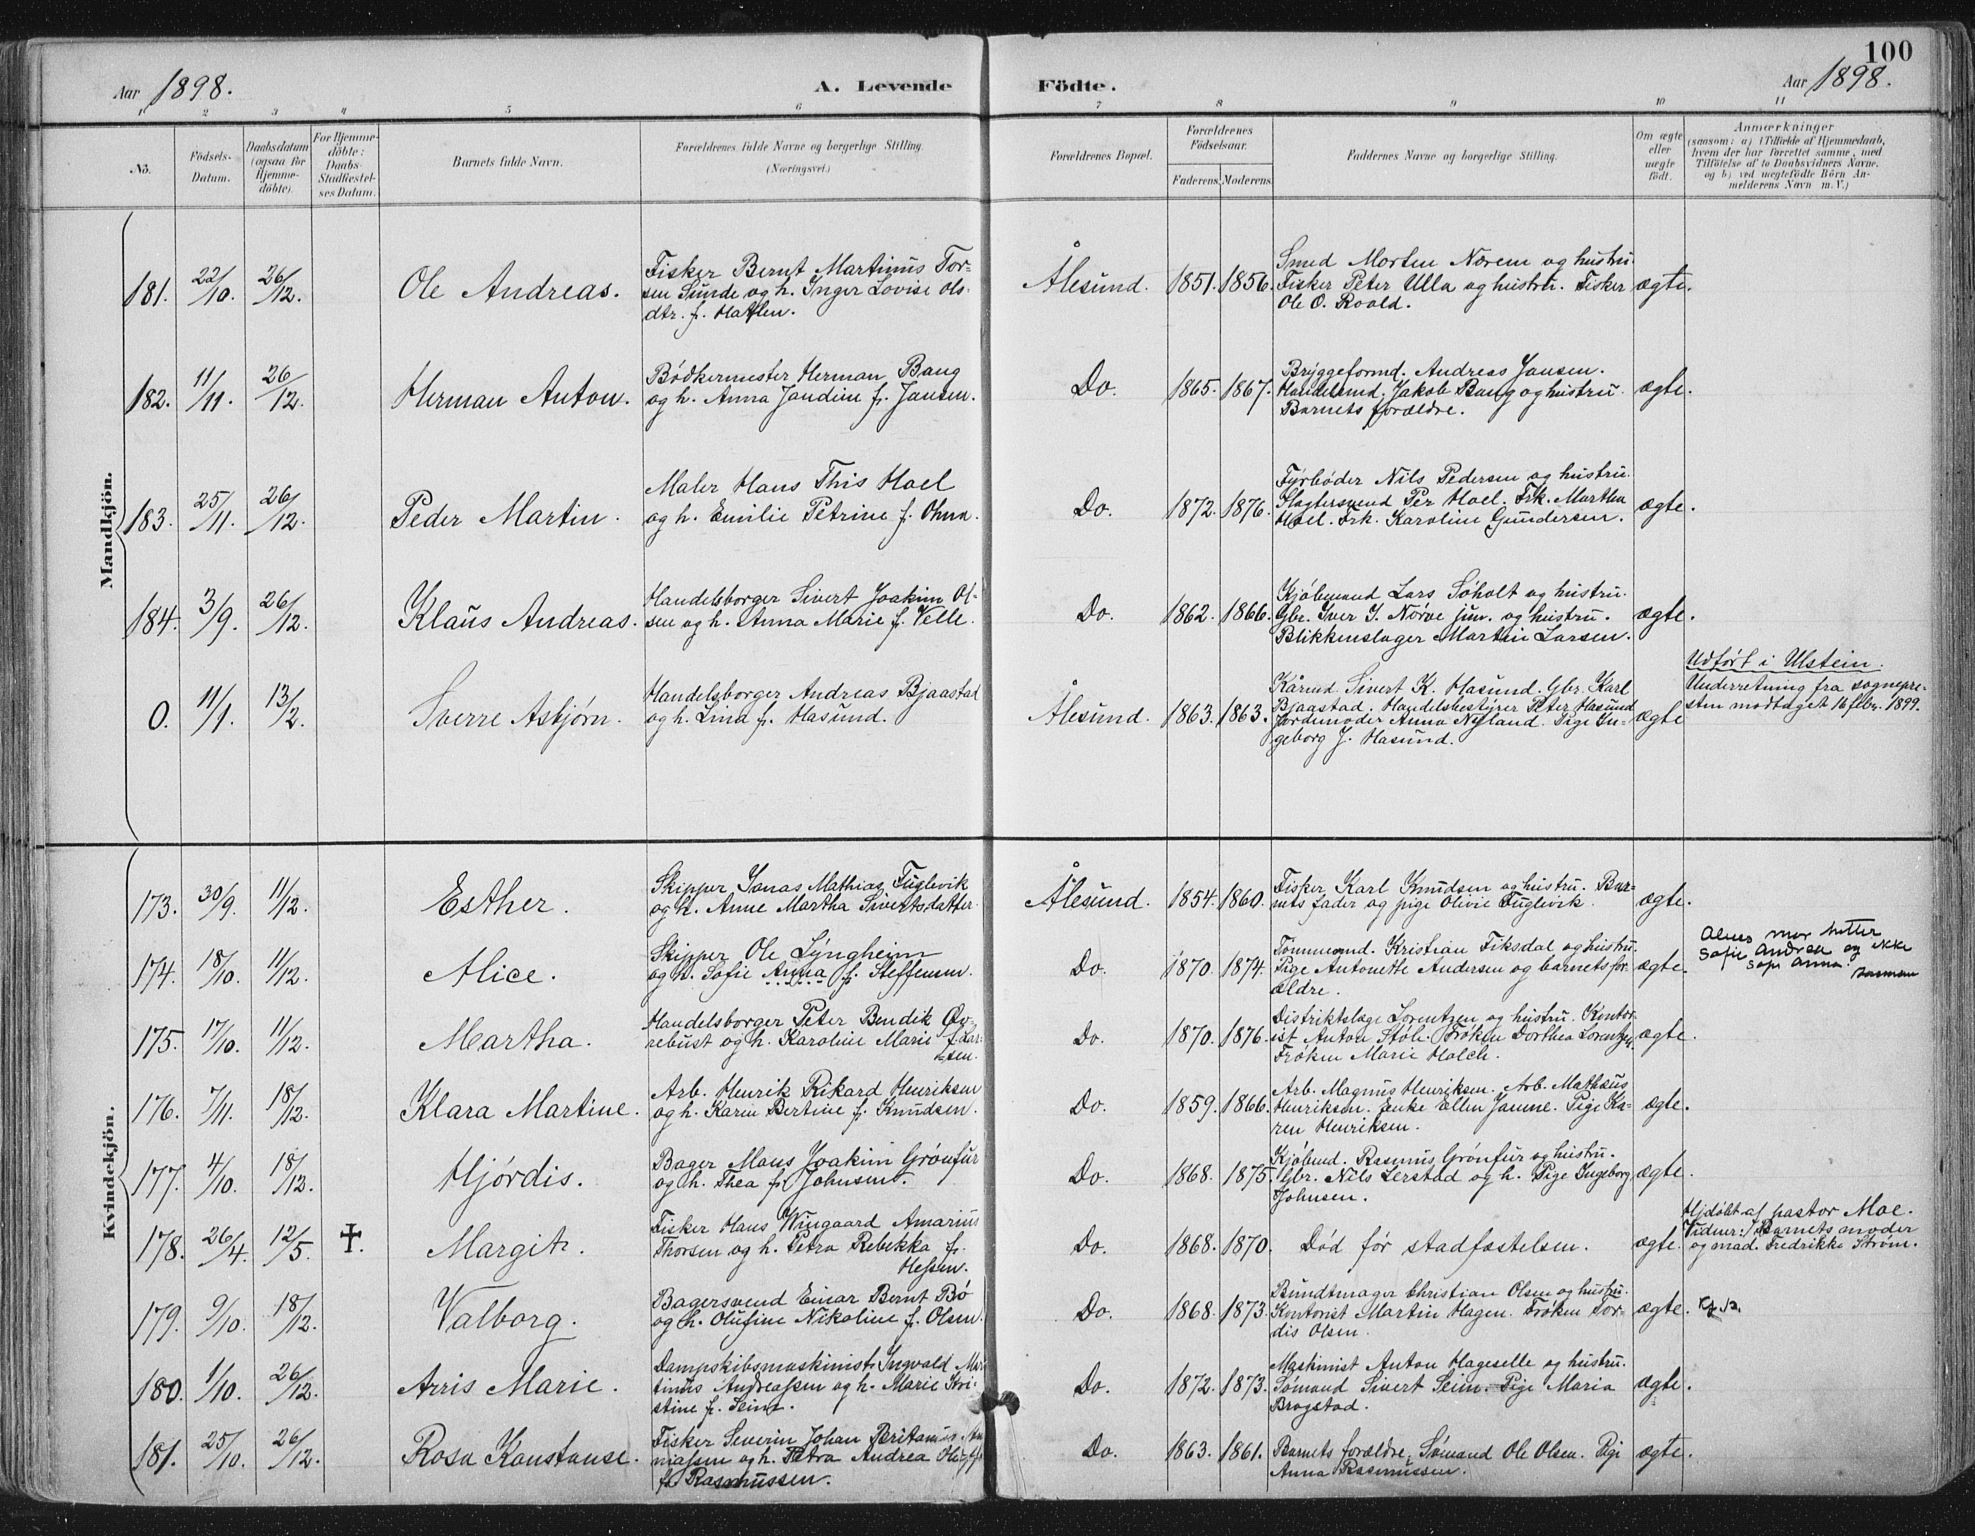 100
Aar 1898.
A. Levende Födte.
Aar 1898.
1 2 3 4 5 6 7 8 9 10 11
No.
Födsels-
Datum.
Daabsdatum
(ogsaa for
Hjemme-
döbte).
For Hjemme-
döbte:
Daabs-
Stadfæstel-
ses Datum.
Barnets fulde Navn.
Forældrenes fulde Navne og borgerlige Stilling.
(Næringsvei.)
Forældrenes Bopæl.
Forældrenes
Födselsaar.
Faderens. Moderens.
Faddernes Navne og borgerlige Stilling.
Om ægte
eller
uægte
födt.
Anmærkninger
(saasom: a) i Tilfælde af Hjemmedaab,
hvem der har forrettet samme, med
Tilföielse af to Daabsvidners Navne.
og b) ved uægtefödte Börn An-
melderens Navn m. V.)
Mandkjön.
181. 22/10. 26/12. Ole Andreas.
Fisker Bernt Martinus Tor-
sen Sunde og h. Inger Lovise Ols-
dtr. f. Hatlen.
Ålesund. 1851. 1856.
Smed Morten Nærem og hustru
Fisker Peter Ulla og hustru. Fisker
Ole O. Roald.
ægte.
182. 11/11. 26/12. Herman Anton.
Bödkermester Herman Bang
og h. Anna Jandine f. Jansen.
Do. 1865. 1867.
Bryggeformd. Andreas Jansen.
Handelsmd. Jakob Bang og hustru
Barnets forældre.
ægte.
183. 25/11. 26/12. Peder Martin.
Maler Hans This Hoel
og h. Emilie Petrine f. Ohna.
Do. 1872. 1876.
Fyrböder Nils Pedersen og hustru.
Slagtersvend Per Hoel. Frk. Martha
Hoel. Frk. Karoline Gundersen.
ægte.
184. 3/9. 26/12. Klaus Andreas.
Handelsborger Sivert Joakim Ol-
sen og h. Anna Marie f. Velle.
Do. 1862. 1866.
Kjöbmand Lars Söholt og hustru.
Gbr. Iver I. Nörve jun. og hustru.
Blikkenslager Martin Larsen.
ægte.
0. 11/1. 13/2. Sverre Asbjørn.
Handelsborger Andreas Bjaastad
og h. Lina f. Hasund.
Ålesund. 1863. 1863.
Kårmd. Sivert K. Hasund. Gbr. Karl
Bjaastad. Handelsbestyrer Peter Hasund
Jordemoder Anna Nyland. Pige In-
geborg J. Hasund.
ægte
Udført i Ulstein.
Underretning fra sognepre-
sten modtaget 16 febr. 1899.
Kvindekjön.
173. 30/9. 11/12. Esther.
Skipper Jonas Mathias Fuglevik
og h. Anne Martha Sivertsdatter.
Ålesund. 1854. 1860.
Fisker Karl Knudsen og hustru. Bar-
nets fader og pige Olivie Fuglevik.
ægte.
174. 18/10. 11/12. Alice.
Skipper Ole Lyngheim
og h. Sofie Anna f. Steffensen.
Do. 1870. 1874.
Tömmermd. Kristian Fiksdal og hustru.
Pige Antonette Andersen og barnets for-
ældre.
ægte.
Alices mor hetter
Sofie Andrea og ikke
Sofie Anna.
175. 17/10. 11/12. Martha.
Handelsborger Peter Bendik Ov-
rebust og h. Karoline Marie f. Lar-
sen.
Do. 1870. 1876.
Distriktslæge Lorentzen og hustru. Kontor-
ist Anton Stöle. Fröken Dorthea Lorentzen.
Fröken Marie Holch.
ægte.
176. 7/11. 18/12. Klara Martine.
Arb. Henrik Rikard Henriksen
og h. Karen Bertine f. Knudsen.
Do. 1859. 1866.
Arb. Magnus Henriksen. Arb. Mathæus
Henriksen. Enke Ellen Janne. Pige Ka-
ren Henriksen.
ægte.
177. 4/10. 18/12. Hjördis.
Bager Hans Joakim Grönfur
og h. Thea f. Johnsen.
Do. 1868. 1875.
Kjöbmd. Rasmus Grönfur og hustru.
Gbr. Nils Lerstad og h. Pige Ingeborg
Johnsen.
ægte.
178. 26/4. 12/5. †. Margit.
Fisker Hans Wingaard Amarius
Thorsen og h. Petra Rebekka f.
Hessen.
Do. 1868. 1870. Död för stadfæstelsen. ægte.
Hjdöbt af pastor Moe.
Vidner: Barnets moder
og mad. Fredrikke Ström.
179. 9/10. 18/12. Valborg.
Bagersvend Einar Bernt Bö
og h. Olufine Nikoline f. Olsen.
Do. 1868. 1873.
Bundtmager Christian Olsen og hustru.
Kontorist Martin Hagen. Fröken Tor-
dis Olsen.
ægte.
180. 1/10. 26/12. Arris Marie.
Dampskibsmaskinist Ingvald Mar-
tinus Andreassen og h. Marie Kri-
stine f. Seim.
Do. 1872. 1873.
Maskinist Anton Hageselle og hustru.
Sömand Sivert Seim. Pige Maria
Brogstad.
ægte.
181. 25/10. 26/12. Rosa Konstanse.
Fisker Severin Johan Britanius
og h. Petra Andrea
f. Rasmussen.
Do. 1863. 1861.
Barnets forældre. Sömand Ole Olsen. Pige
Anna Rasmussen.
ægte.